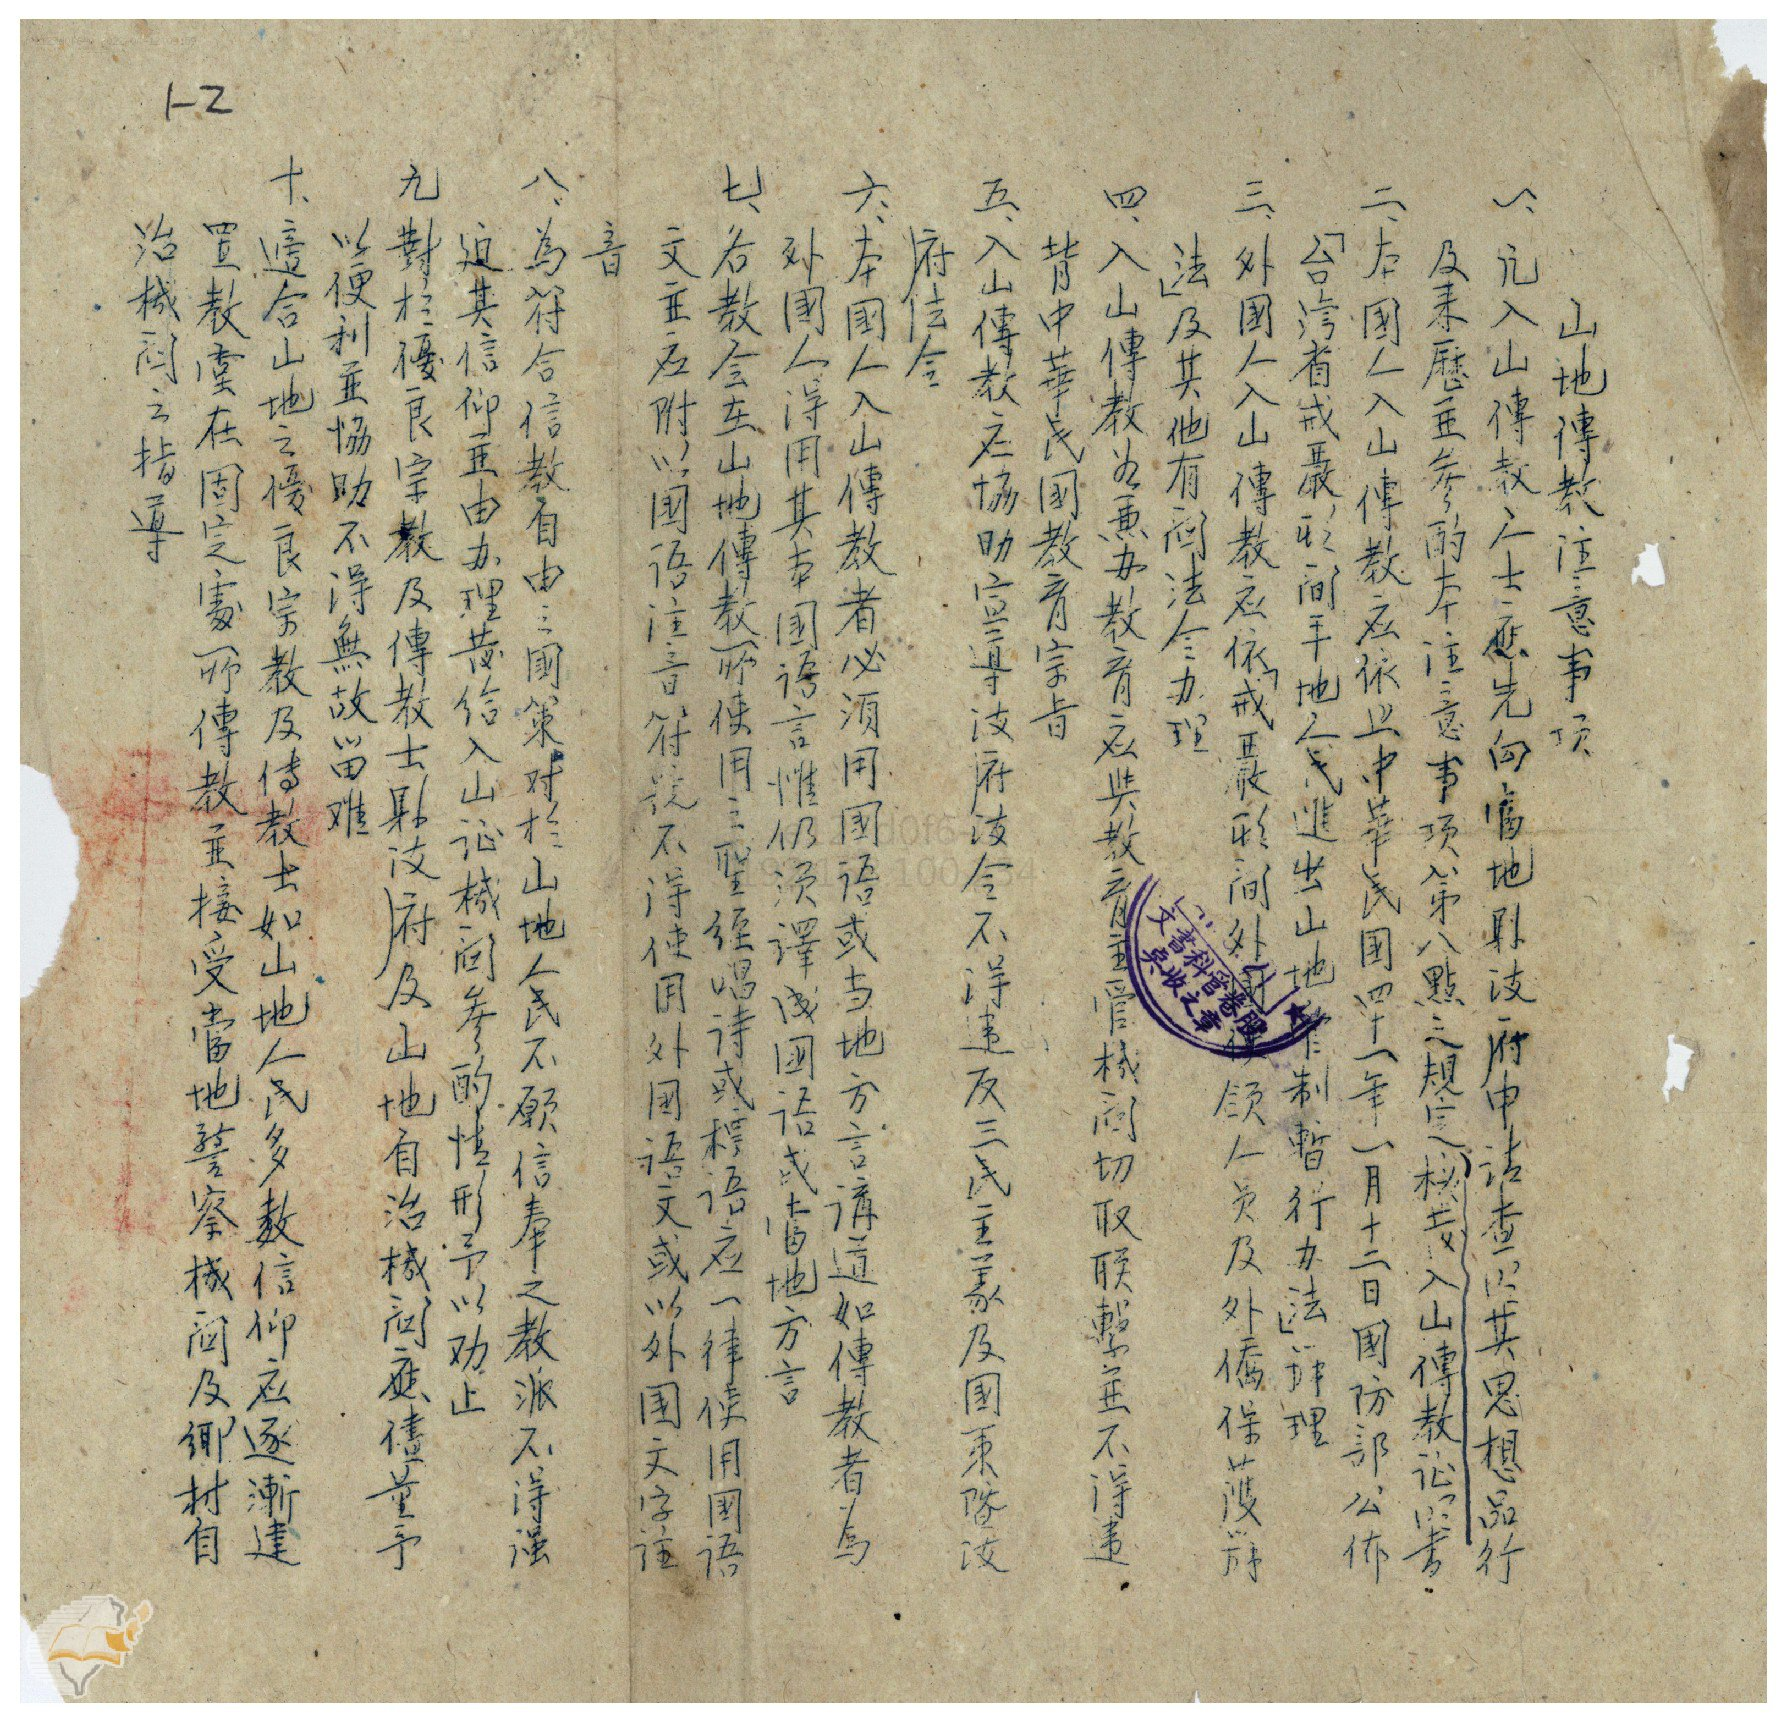 1-2
山地傳教注意事項
一、凡入山傳教人士應先向當地縣政府申請查明其思想品行
及來歷並參酌本注意事項第八點之規定核發入山傳教証明書
二、本國人入山傳教应依照中華民國四十一年一月十二日國防部公佈
「台灣省戒嚴形間平地人民進出山地管制暫行办法」辦理
三、外國人入山傳教应依「戒嚴形間外國使領人員及外僑保護辦
法」及其他有関法令办理
四、入山傳教如兼办教育应與教育主管機関切取联繫並不得違
背中華民國教育宗旨
五、入山傳教应協助宣導政府政令不得違反三民主義及國策暨政
府法令
六、本國人入山傳教者必須用國語或当地方言講道如傳教者為
外國人得用其本國語言惟仍須譯成國語或當地方言
七、各教会在山地傳教所使用之聖經唱詩或標語应一律使用國語
文並应附以國語注音符號不得使用外國語文或以外国文字註
音
八、為符合信教自由之國策对於山地人民不願信奉之教派不得强
迫其信仰並由办理發給入山证機関參酌情形予以劝止
九、對於優良宗教及傳教士縣政府及山地自治機関應儘量予
以便利並協助不得無故留难
十、適合山地之優良宗教及傳教士如山地人民多數信仰应逐漸建
置教堂在固定處所傳教並接受當地警察機関及鄉村自
治機関之指導